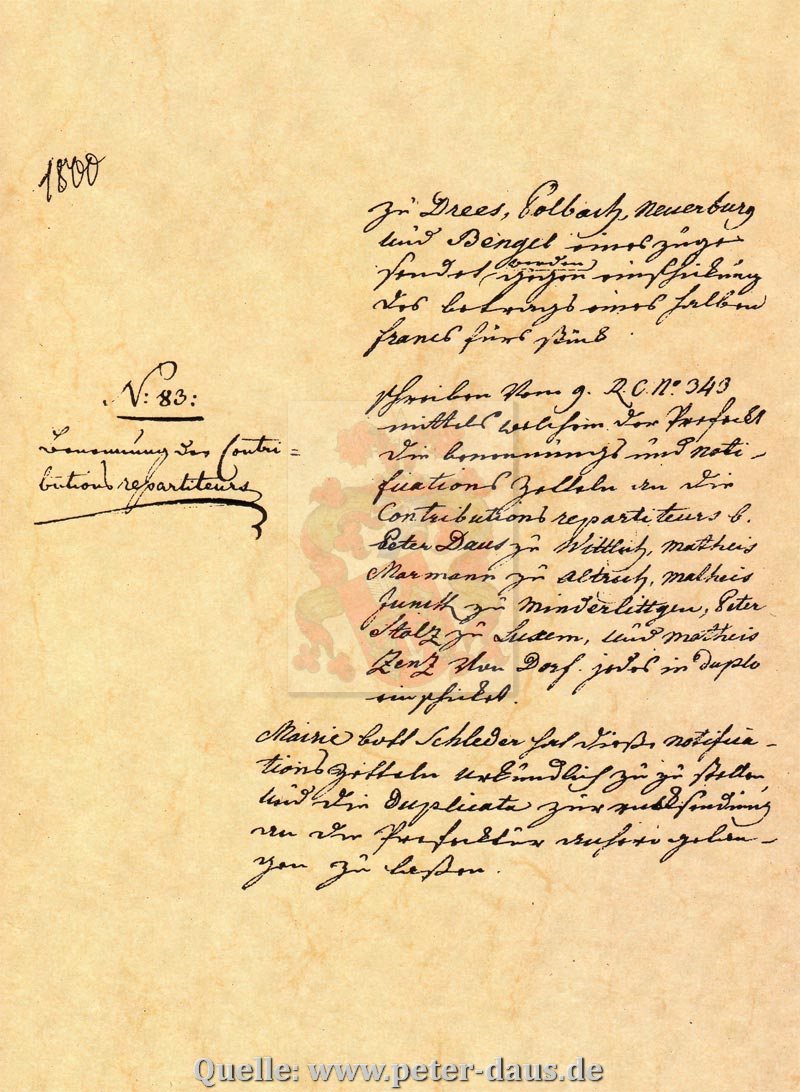 1800
zu Drees, Polbach, Neuerburg
und Bengel eines zuge
sendet werden gegen einschickung
des betrags eines halben
francs fürs stück.
N: 83:
Benennung der Contri=
butions repartiteurs
schreiben vom 9. R.C. No. 343
mittels welchem der Prefeckt
die benennungs und noti-
fications Zetteln an die
Contributions repartiteurs b.
Peter Daus zu Wittlich, matheis
Marmann zu altrich, matheis
Junck zu Minderlittgen, Peter
Stolz zu Luxem, und matheis
Zenz von Dorf. jedes in duplo
einschicket.
Mairie bott Schleder hat diese notifica-
tions Zetteln urkundlich zu zu stellen,
und die Duplicata zur rucksendung
an die Prefecktur anhero gelan-
gen zu laßen.
Quelle: www.peter-daus.de